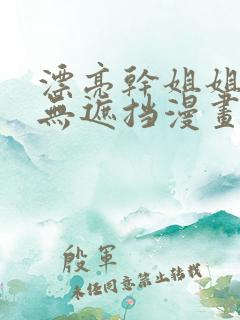 漂亮幹姐姐
無遮挡漫畫
殷軍
未经同意禁止转载